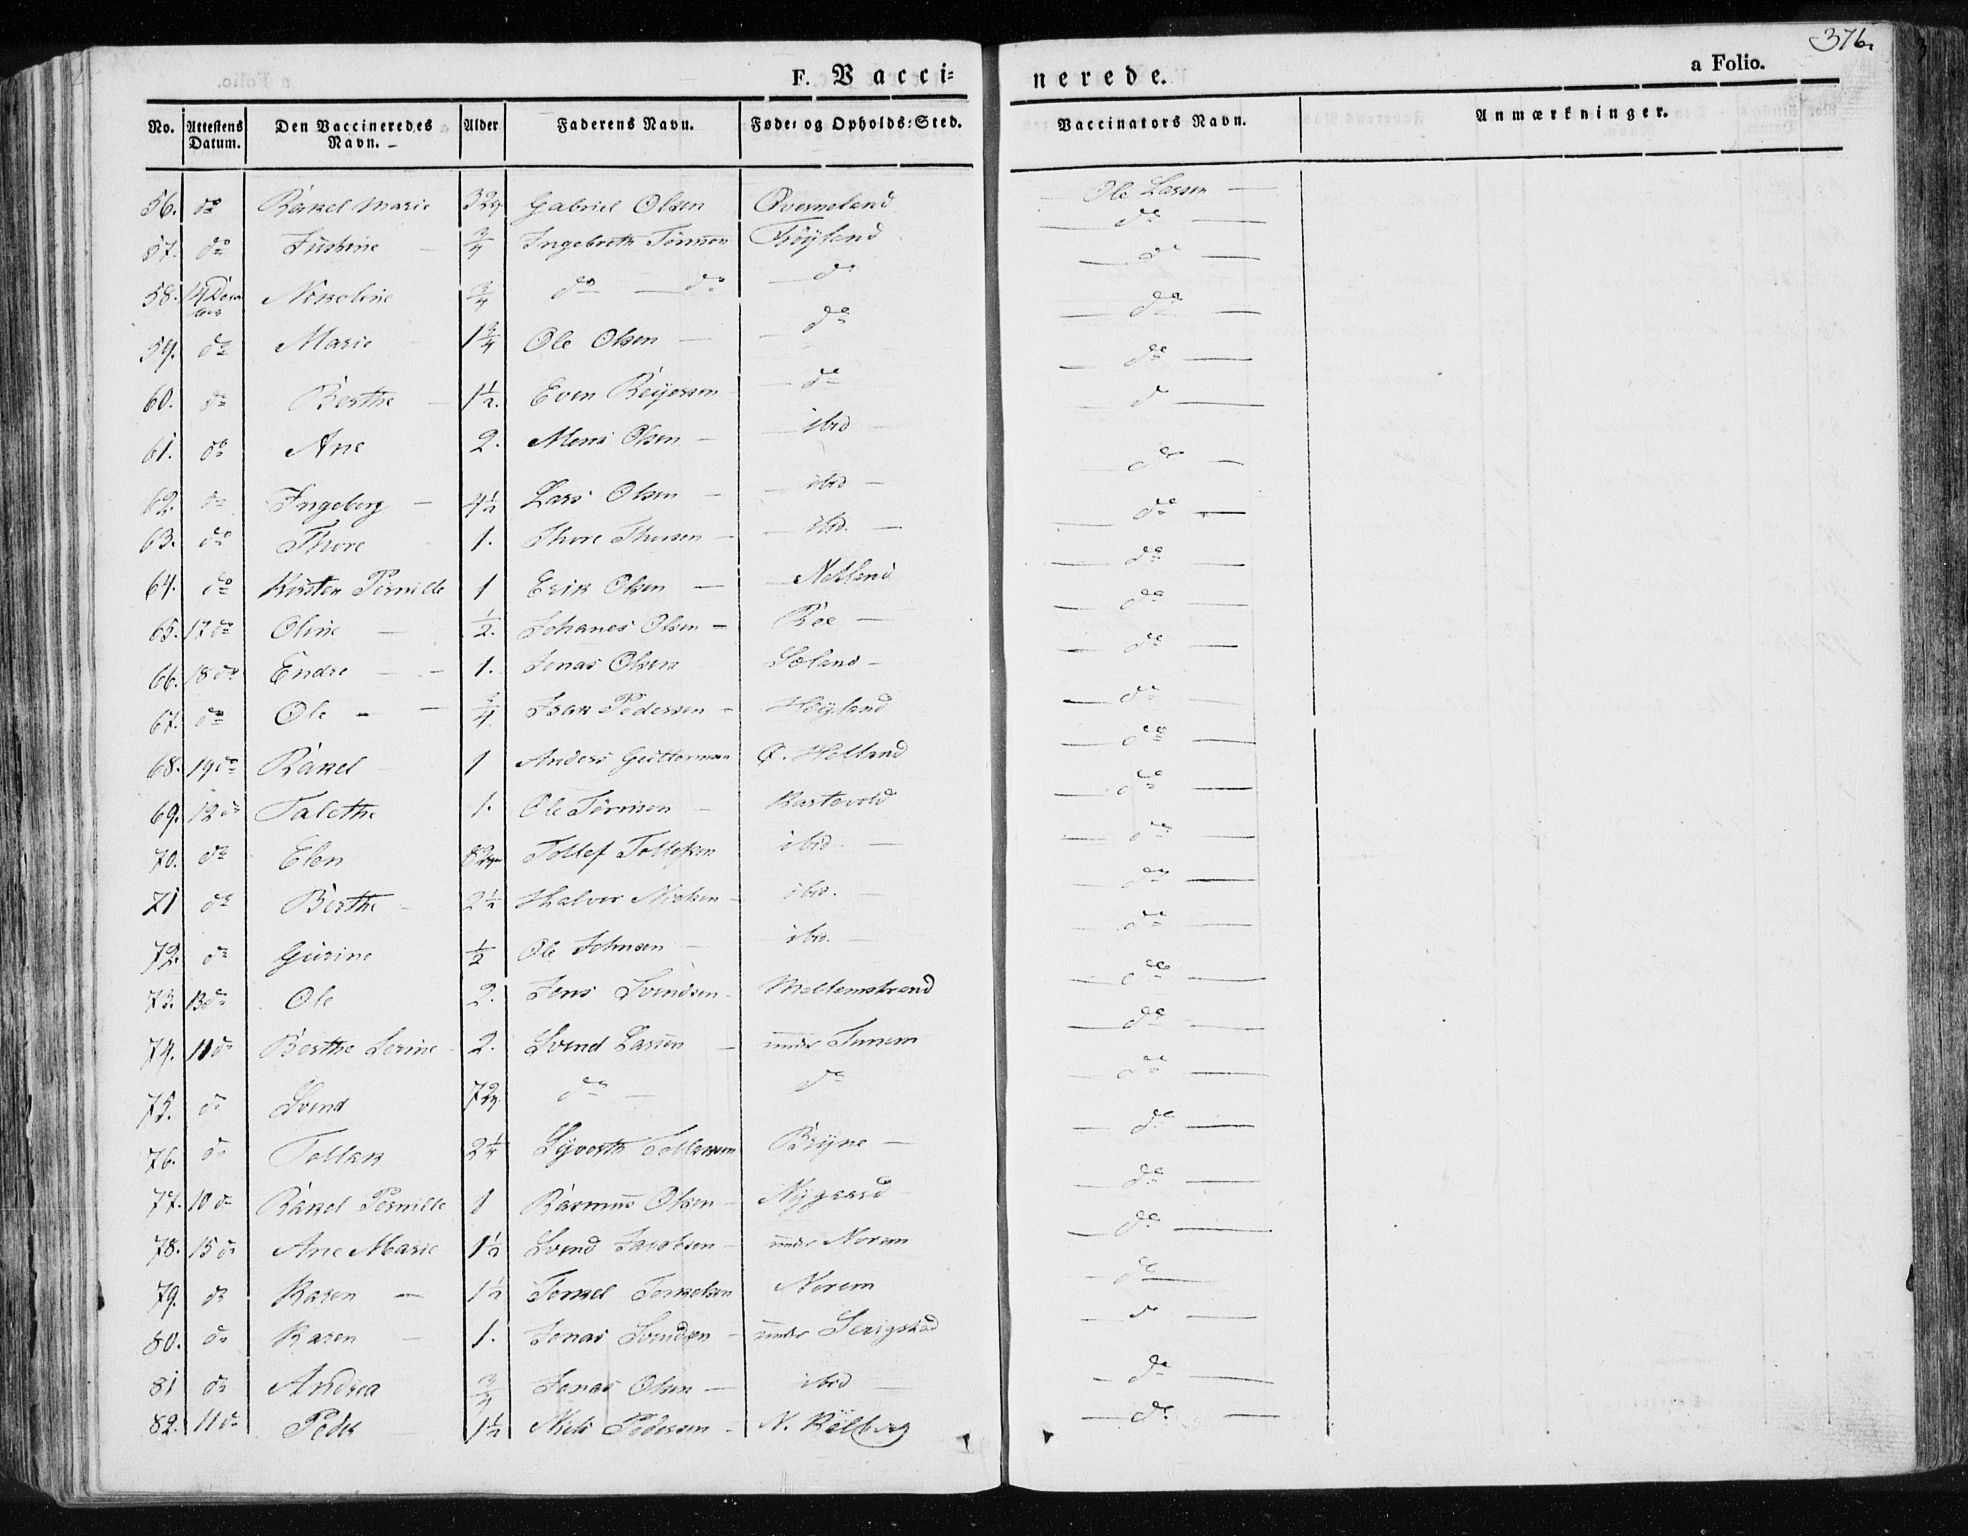 376.
F. Vacci=
nerede.
a Folio.
No. | Attestens Datum. | Den Vaccineredes Navn. | Alder | Faderens Navn. | Føde: og Opholds: Sted. | Vaccinators Navn. | Anmærkninger.
56. do Rakel Marie Gabriel Olsen Qverneland Ole Lassen
57. do Justine 3/4 Ingebreth Tönnesen Fröyland do
58. Nikoline 3/4 do do do do
59. do Marie 1 3/4 Ole Olsen do do
60. do Berthe 1 1/2. Even Reijersen do do
61. do Ane 2. Mons Olsen ibid do
62. do Ingeborg 4 1/2 Lars Olsen ibid do
63. do Thore 1. Thore Thorsen ibd. do
64. do Kirsten Pernille 1 Erik Olsen Netland do
65. 17 do Oline 1/2. Johanes Olsen Röe do
66. 18 do Endre 1. Jonas Olsen Soland do
67. do Ole 3/4 Isak Pedersen Höyland do
68. 19 do Rakel 1 Anders Guttormsen Ø. Helland do
69. 12 do Talethe 1. Ole Tönnisen Kartevold do
70. do Elen Tollef Tollefsen ibid. do
71 do Berthe 2 1/2 Halvor Nielsen ibd. do
72. do Gurine 1/2 Ole Johnsen ibd. do
73. 13 do Ole 2. Jens Svendsen Mellemstrand do
74. 11 do Berthe Serine 2. Svend Larsen under Tunem do
75. do Svend do do do
76. do Tollak 2 1/4 Syverth Tollaksen Bryne do
77. 10 do Rakel Pernille 1 Rasmus Olsen Nygaard do
78. 15 do Ane Marie 1 1/2 Svend Jacobsen under Norem do
79. do Karen 1 1/2 Torkel Torkelsen Norem do
80. do Karen 1. Jonas Svendsen under Serigstad do
81 do Andrea 3/4 Jonas Olsen ibid do
82. 11 do Peder 1 1/2 Niels Pedersen N. Rölberg do